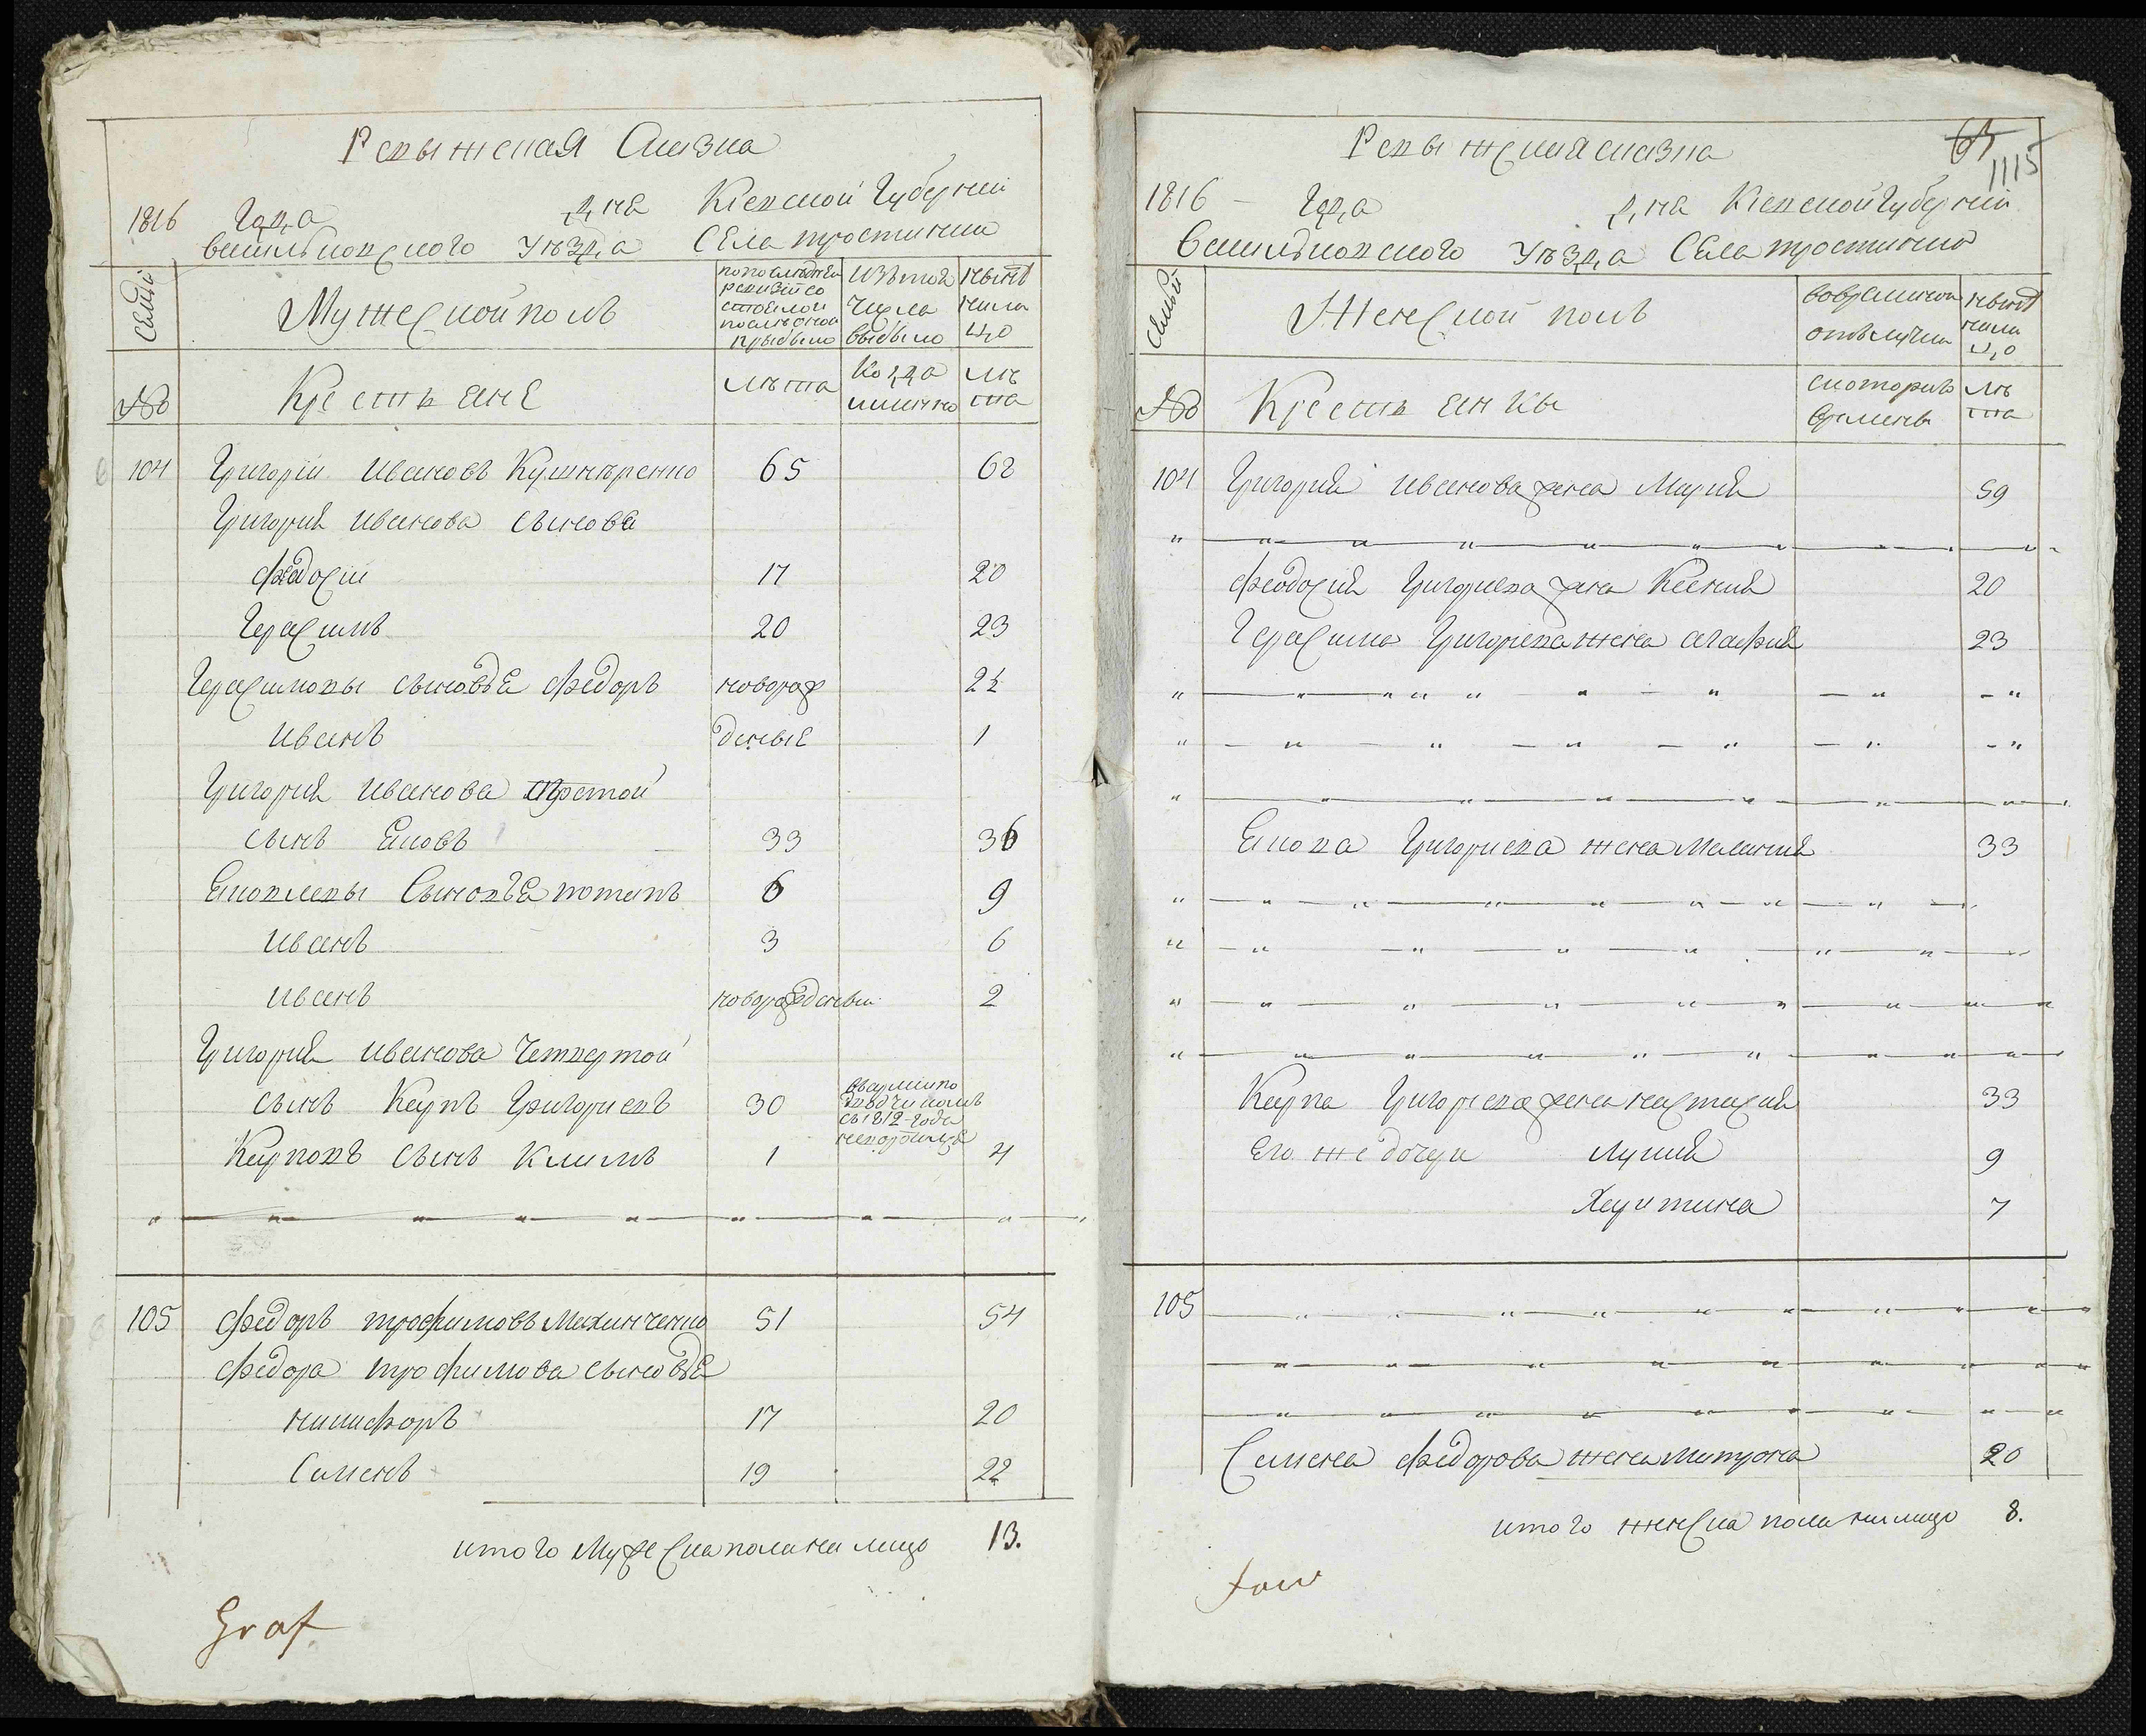 Ревыжская Сказка
1816 Года дня Кіевской Губерніи
васильковского Уезда Села тростинки
Семьи
Мужеской полъ
по последней ревизіи состояло и после оной прыбыло
Изъ того Числа выбыло
ныне на лицо
№
Крестьяне
лета
Когда именно
лета
104 Григорій Ивановъ Кушнеренко 65 68
Григорія Иванова сынове
Федосій 17 20
Герасимъ 20 23
Герасимовы сыновьЕ Федоръ новорож 2½
Иванъ денные 1
Григорія Иванова третой
сынъ Яковъ 33 36
Яковлевы СыновьЕ потапъ 6 9
Иванъ 3 6
Иванъ новорожденны 2
Григорія Иванова Четвертой
сынъ Карпъ Григориевъ 30 съ 1812 года
Карповъ сынъ Климъ 1 4
105 Федоръ трофимовъ Махинченко 51 54
Федора трофимова сыновьЕ
никифоръ 17 20
Семенъ 19 22
итого Мужеска пола на лицо 13.
Graf
Ревыжская сказка
65
1115
1816 Года дня Кіевской Губерніи
Васильковского Уезда Села тростинки
Семьи
Женской полъ
во временной отлучки
ныне на лицо
№
Крестьянкы
с которого времены
лета
104 Григорія Иванова жена Марія 59
Феодосія Григориева жена Ксенія 20
Герасима Григориева жена агафія 23
Якова Григориева жена Меланія 33
Карпа Григориева жена настасія 33
Его же дочери Лукія 9
Харитина 7
105
Семена Федорова жена Матрона 20
итого женска пола на лицо 8.